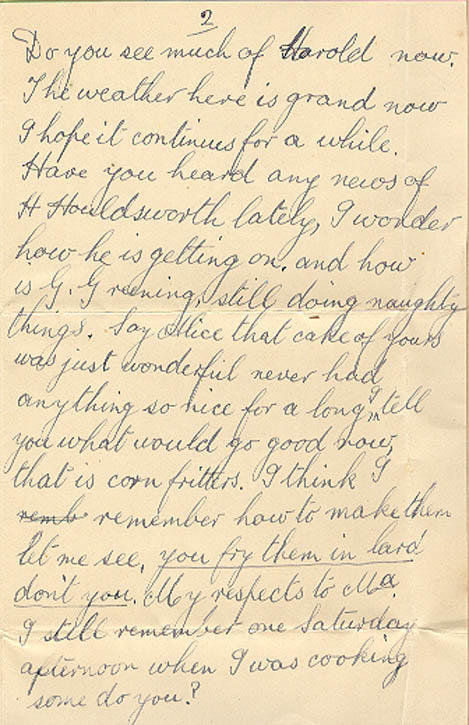 2
Do you see much of Harold now.
The weather here is grand now
I hope it continues for a while.
Have you heard any news of
H Houldsworth lately, I wonder
how he is getting on. and how
is G. Greening, still doing naughty
things. Say Alice that cake of yours
was just wonderful never had
anything so nice for a long, tell
you what would go good now,
that is corn fritters. I think I
remb remember how to make them
let me see, you fry them in lard
don't you. My respects to Ma.
I still remember one Saturday
afternoon when I was cooking
some do you?